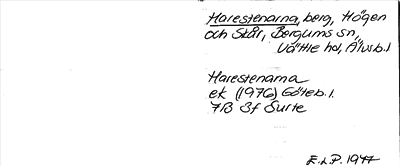 Harestenarna, berg, Högen
och Skår, Bergums sn,
Vättle hd, Älvsb.l
Harestenarna
ek (1976) Göteb.l.
7B 3f Surte
E.L.P. 1977